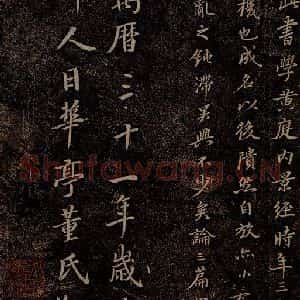 此書學黄庭内景經時年三
機也成名以後隤然自放亦小
亂之鈍滯吴興不少矣論三篇
萬曆三十一年歲
人日華亭董氏
Shufawang.CN